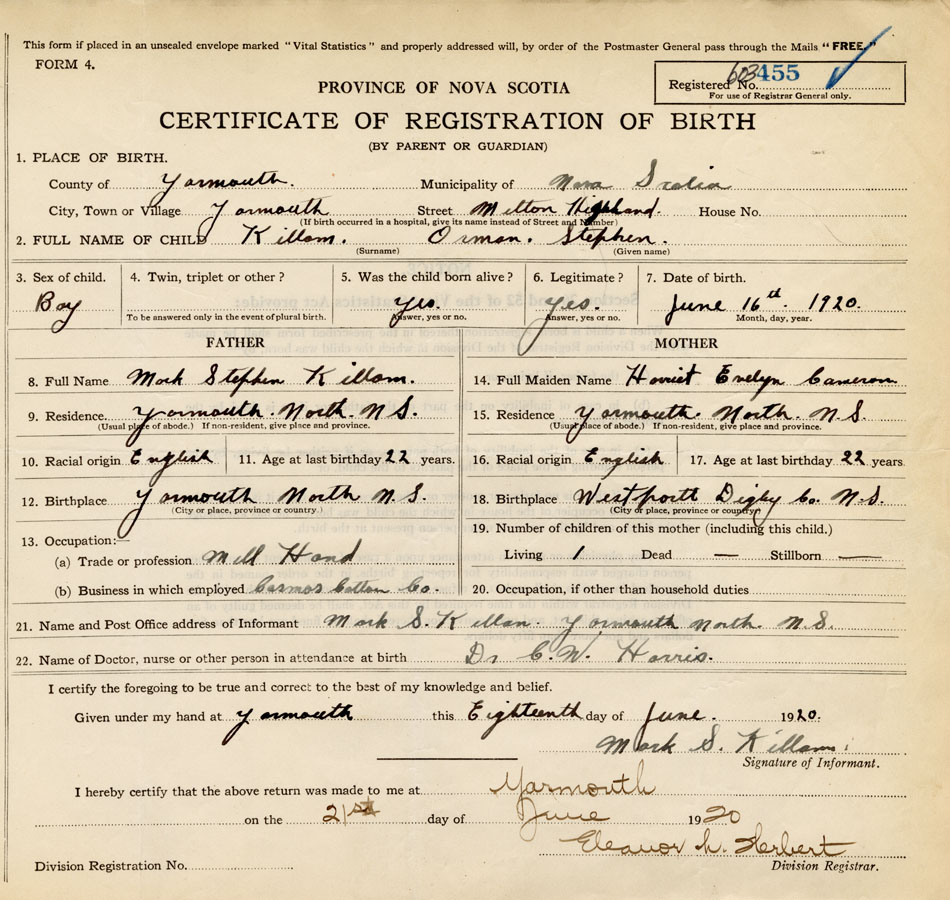 This form if placed in an unsealed envelope marked "Vital Statistics" and properly addressed will, by order of the Postmaster General pass through the Mails "FREE."
FORM 4.
Registered No. 603455
For use of Registrar General only.
PROVINCE OF NOVA SCOTIA
CERTIFICATE OF REGISTRATION OF BIRTH
(BY PARENT OR GUARDIAN)
1. PLACE OF BIRTH.
County of Yarmouth. Municipality of Nova Scotia
City, Town or Village Yarmouth Street Milton Highland. House No.
(If birth occurred in a hospital, give its name instead of Street and Number)
2. FULL NAME OF CHILD Killam. Orman. Stephen.
(Surname) (Given name)
3. Sex of child. 4. Twin, triplet or other? 5. Was the child born alive? 6. Legitimate? 7. Date of birth.
Boy Yes. Yes. June 16th. 1920.
To be answered only in the event of plural birth. Answer, yes or no. Answer, yes or no. Month, day, year.
FATHER MOTHER
8. Full Name Mark Stephen Killam. 14. Full Maiden Name Harriet Evelyn Cameron
9. Residence. Yarmouth. North. N.S. 15. Residence Yarmouth. North. N.S.
(Usual place of abode.) If non-resident, give place and province. (Usual place of abode.) If non-resident, give place and province.
10. Racial origin English 11. Age at last birthday 22 years. 16. Racial origin English 17. Age at last birthday 22 years
12. Birthplace Yarmouth North N.S. 18. Birthplace Westport Digby Co. N.S.
(City or place, province or country.) (City or place, province or country)
13. Occupation:— 19. Number of children of this mother (including this child.)
(a) Trade or profession Mill Hand Living 1 Dead — Stillborn —
(b) Business in which employed Cosmos Cotton Co. 20. Occupation, if other than household duties
21. Name and Post Office address of Informant Mark S. Killam. Yarmouth North. N.S.
22. Name of Doctor, nurse or other person in attendance at birth Dr C.W. Harris.
I certify the foregoing to be true and correct to the best of my knowledge and belief.
Given under my hand at Yarmouth this Eighteenth day of June. 1920.
Mark S. Killam.
Signature of Informant.
I hereby certify that the above return was made to me at Yarmouth
on the 21st day of June 1920
Eleanor L. Herbert
Division Registration No. Division Registrar.